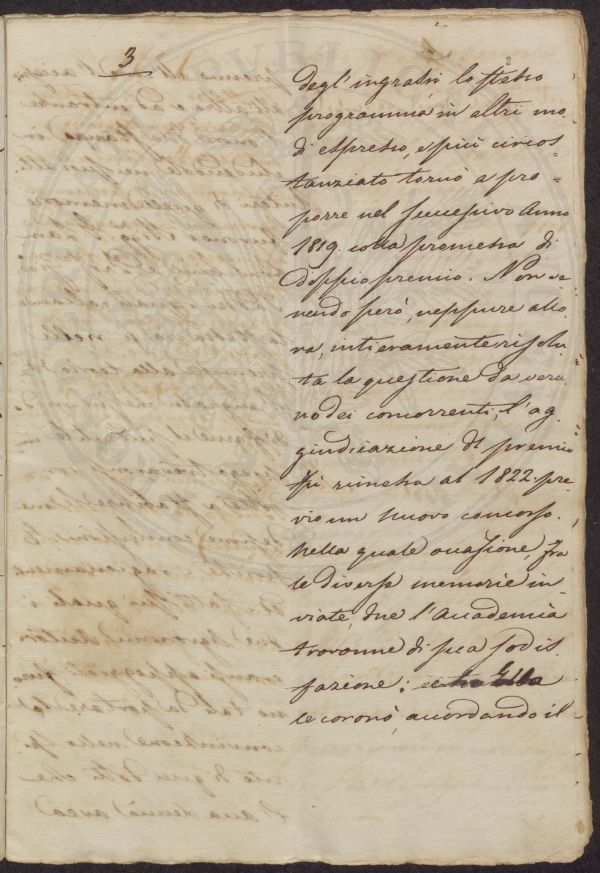 3
degl'ingrassi lo stesso
programma in altri mo
di espresso, e più circos
tanziato tornò a pro=
porre nel successivo Anno
1819. colla promessa di
doppio premio. Non ve
nendo però, neppure allo
ra, intieramente risolu
ta la questione da veru
no dei concorrenti, l'ag
giudicazione del premio
fu rimessa al 1822 pre
vio un nuovo concorso.
Nella quale occasione, fra
le diverse memorie in
viate, due l'Accademia
trovonne di sua sodis
fazione;
le coronò, accordando il